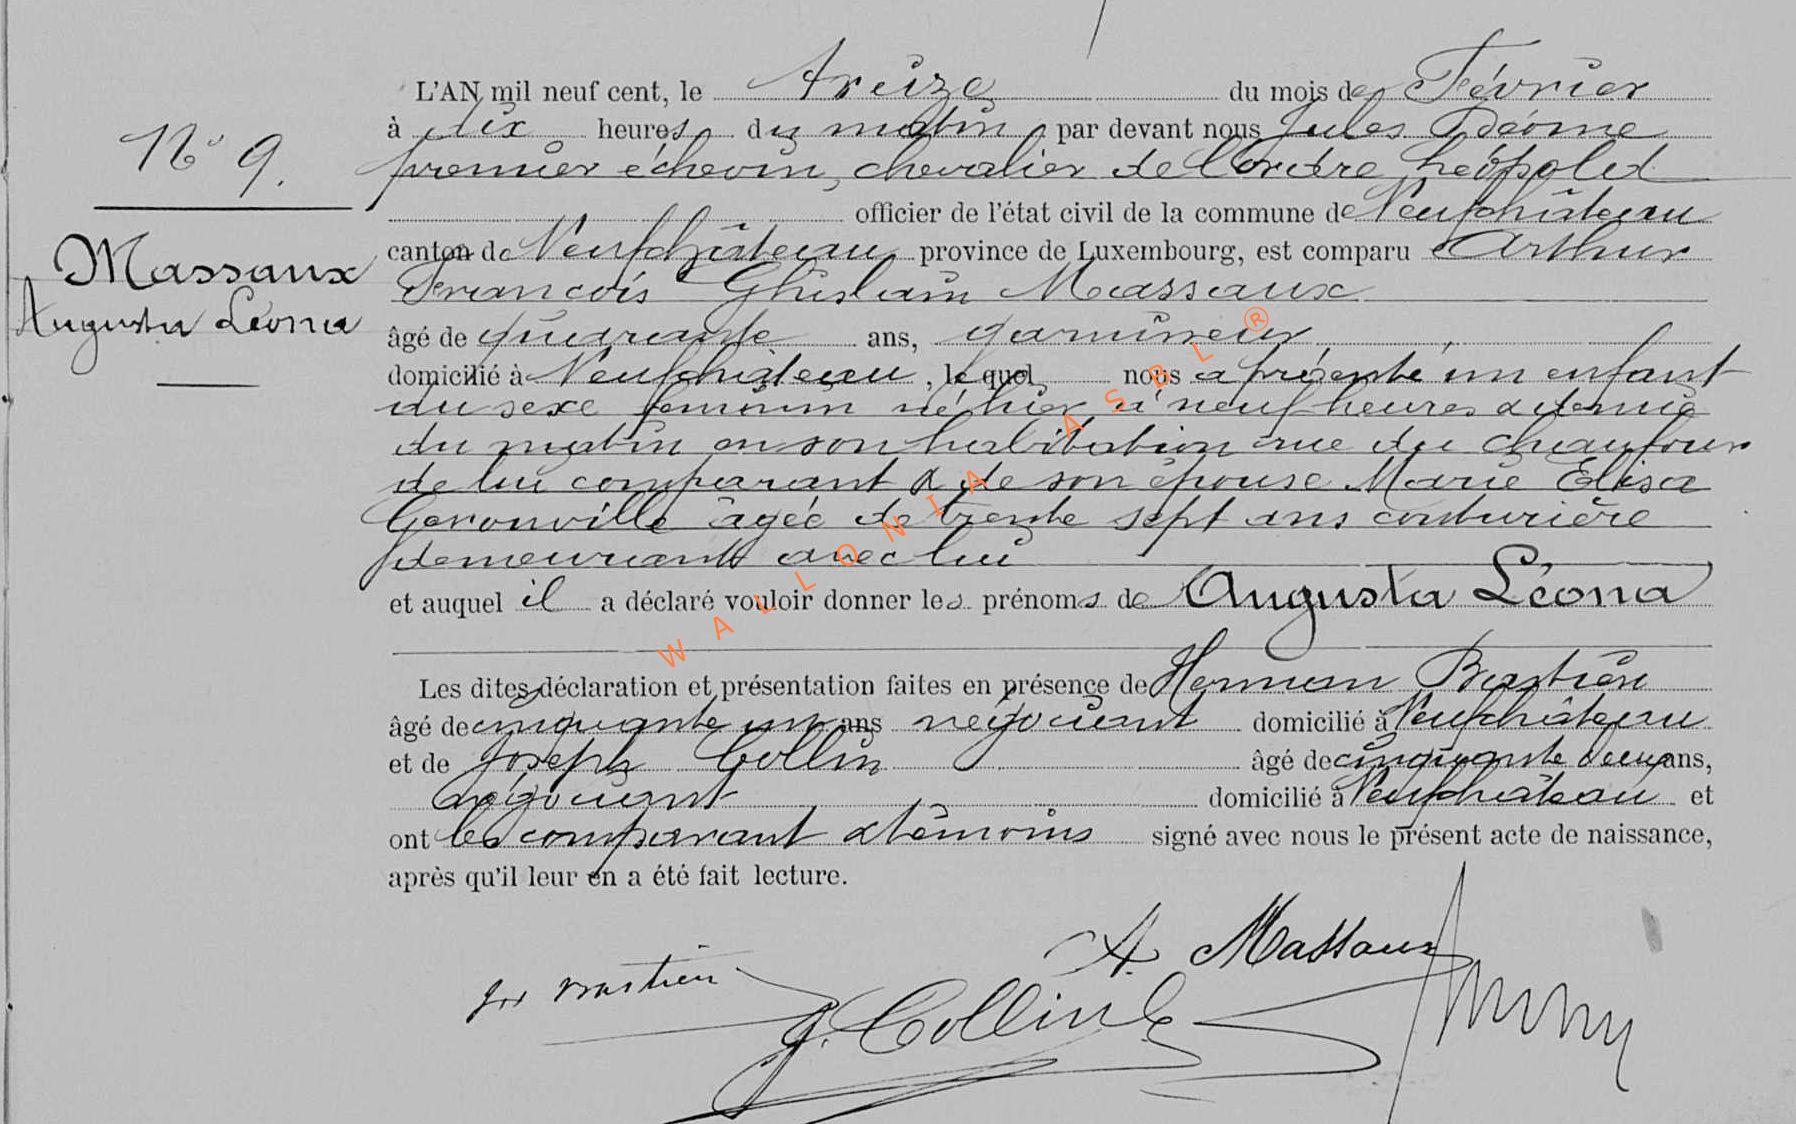 L'AN mil neuf cent, le treize du mois de Février
à dix heures du matin, par devant nous Jules
premier échevin, chevalier de l'ordre Léopold
officier de l'état civil de la commune de Neufchâteau
canton de Neufchâteau province de Luxembourg, est comparu Arthur
François Ghislain Massaux
âgé de quarante ans, garnisseur
domicilié à Neufchâteau, le quel nous a présenté un enfant
du sexe féminin né hier à neuf heures & demie
du matin en son habitation rue du Chaufour
de lui comparant & de son épouse Marie Elisa
Geronville âgée de trente sept ans couturière
demeurant avec lui
et auquel il a déclaré vouloir donner les prénoms de Augusta Léona
Les dites déclaration et présentation faites en présence de Herman Bastien
âgé de cinquante un ans négociant domicilié à Neufchâteau
et de Joseph Collin âgé de cinquante deux ans,
négociant domicilié à Neufchâteau et
ont les comparant & témoins signé avec nous le présent acte de naissance,
après qu'il leur en a été fait lecture.
No 9.
Massaux
Augusta Léona
A. Massaux
Bastien
J. Collin
WALLONIA ASBL ®